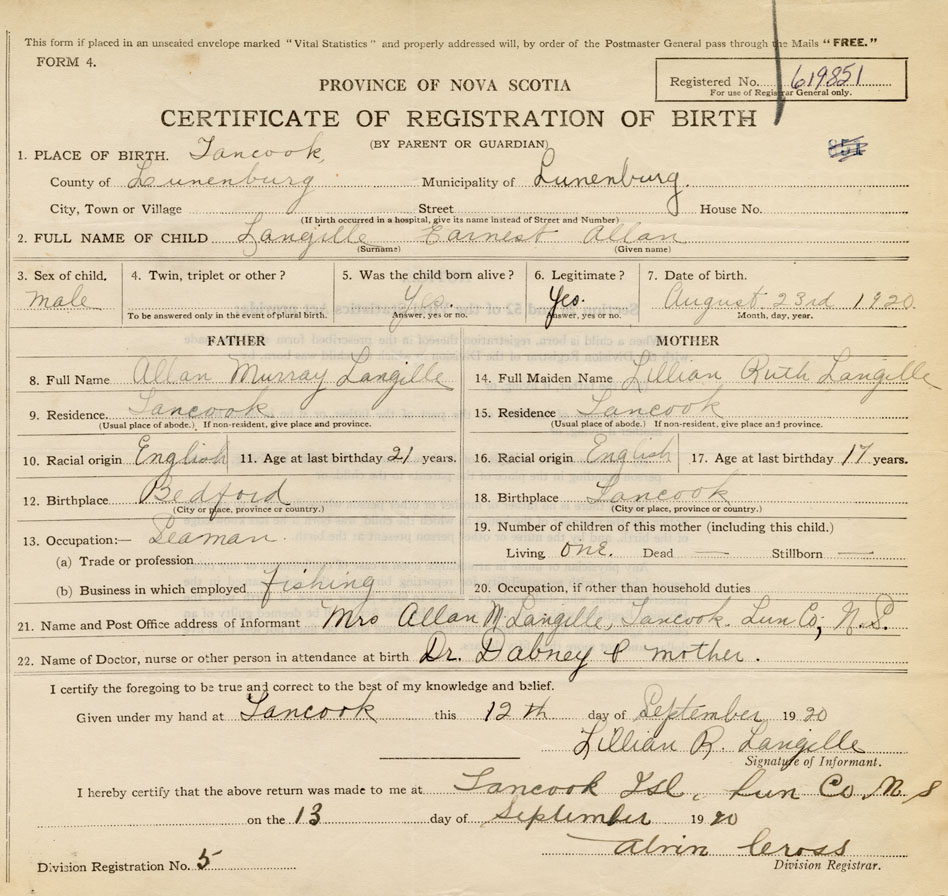 This form if placed in an unsealed envelope marked "Vital Statistics" and properly addressed will, by order of the Postmaster General pass through the Mails "FREE."
FORM 4.
Registered No. 619851
For use of Registrar General only.
PROVINCE OF NOVA SCOTIA
CERTIFICATE OF REGISTRATION OF BIRTH
(BY PARENT OR GUARDIAN)
851
1. PLACE OF BIRTH. Tancook,
County of Lunenburg Municipality of Lunenburg.
City, Town or Village Street House No.
(If birth occurred in a hospital, give its name instead of Street and Number)
2. FULL NAME OF CHILD Langille Earnest Allan
(Surname) (Given name)
3. Sex of child. 4. Twin, triplet or other? 5. Was the child born alive? 6. Legitimate? 7. Date of birth.
male Yes. Yes. August 23rd 1920
To be answered only in the event of plural birth. Answer, yes or no. Answer, yes or no. Month, day, year.
FATHER MOTHER
8. Full Name Allan Murray Langille 14. Full Maiden Name Lillian Ruth Langille
9. Residence. Tancook 15. Residence Tancook
(Usual place of abode.) If non-resident, give place and province. (Usual place of abode.) If non-resident, give place and province.
10. Racial origin English 11. Age at last birthday 21 years. 16. Racial origin English 17. Age at last birthday 17 years.
12. Birthplace Bedford 18. Birthplace Tancook
(City or place, province or country.) (City or place, province or country.)
13. Occupation:— Seaman. 19. Number of children of this mother (including this child.)
(a) Trade or profession Living, one. Dead — Stillborn —
(b) Business in which employed fishing 20. Occupation, if other than household duties
21. Name and Post Office address of Informant Mrs Allan M Langille, Tancook. Lun Co, N.S.
22. Name of Doctor, nurse or other person in attendance at birth Dr. Dabney & mother.
I certify the foregoing to be true and correct to the best of my knowledge and belief.
Given under my hand at Tancook this 12th day of September 1920
Lillian R. Langille
Signature of Informant.
I hereby certify that the above return was made to me at Tancook Isl, Lun Co. N S
on the 13 day of September 1920
Alvin Cross
Division Registration No. 5 Division Registrar.